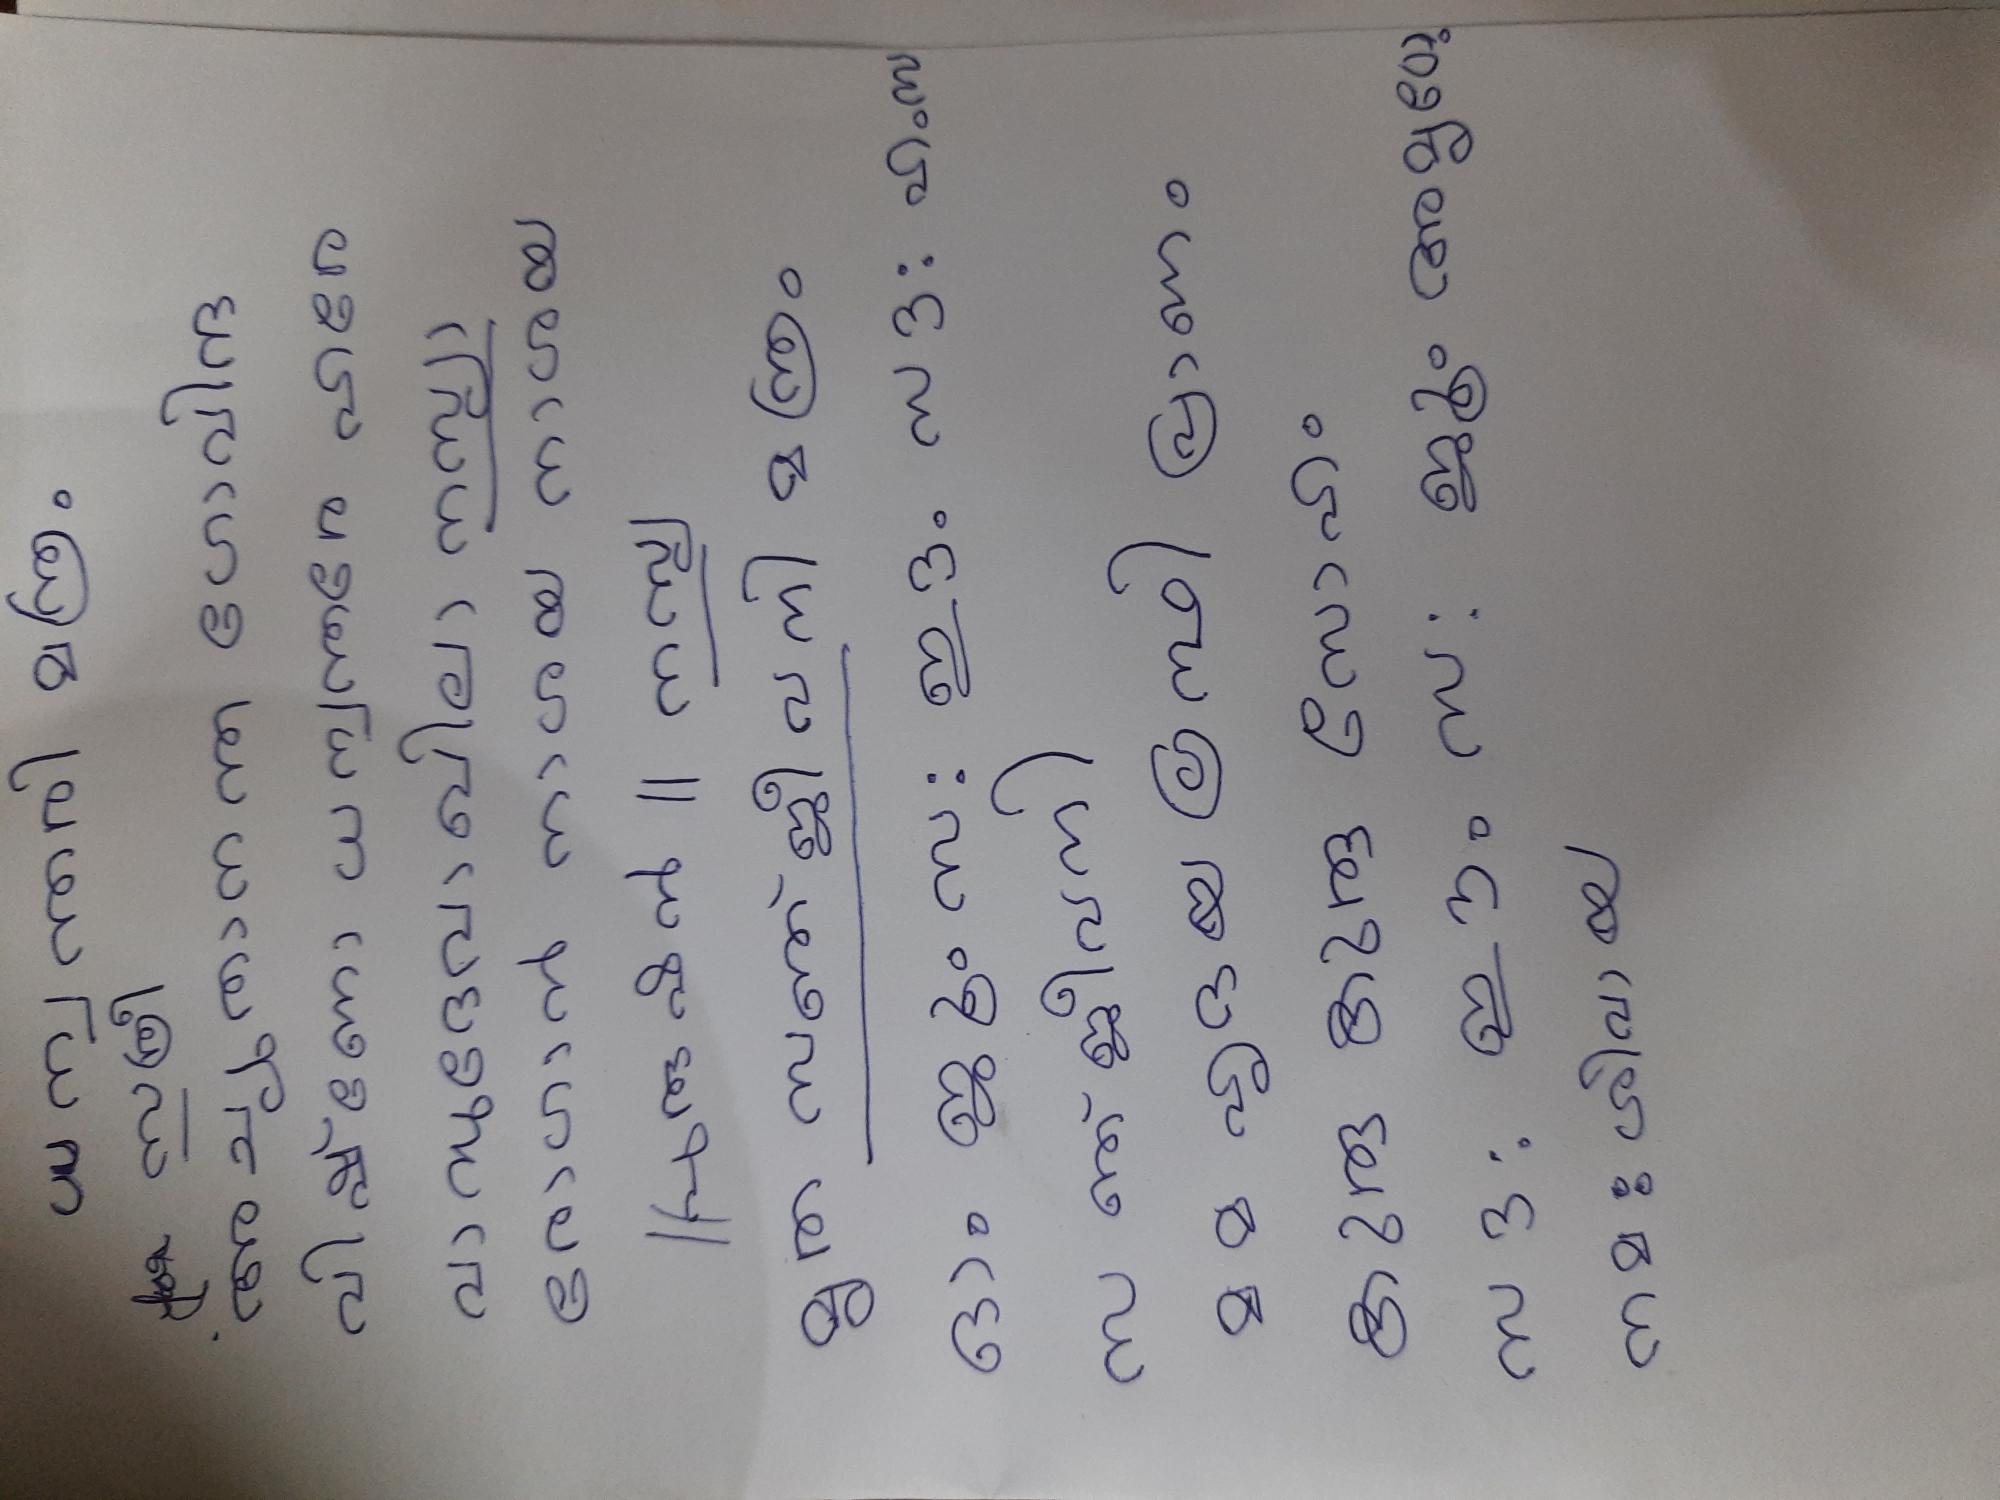 ധന്വന്തരി മന്ത്രം
സ്ത്രീ
അച്യുതാനന്ത ഗോവിന്ദ
വിഷ്ണോ ധന്വന്തരേ ഹരേ
വാസുദേവാഖിലാ നസ്യാ
രോഗാൻ നാശയ നാശയ
||പുരുഷൻ || നസ്യ
മൃത സഞ്ജീവനി മന്ത്രം
ഓം ജൂം സഃ ഈം സൗഃ ഹംസ
സഞ്ജീവനി
മമ ഹൃദയ ഗ്രന്ഥി പ്രാണം
കുരു കുരു സോഹം
സൗഃ ഈം സഃ ജൂം
നമഃ ശിവായ